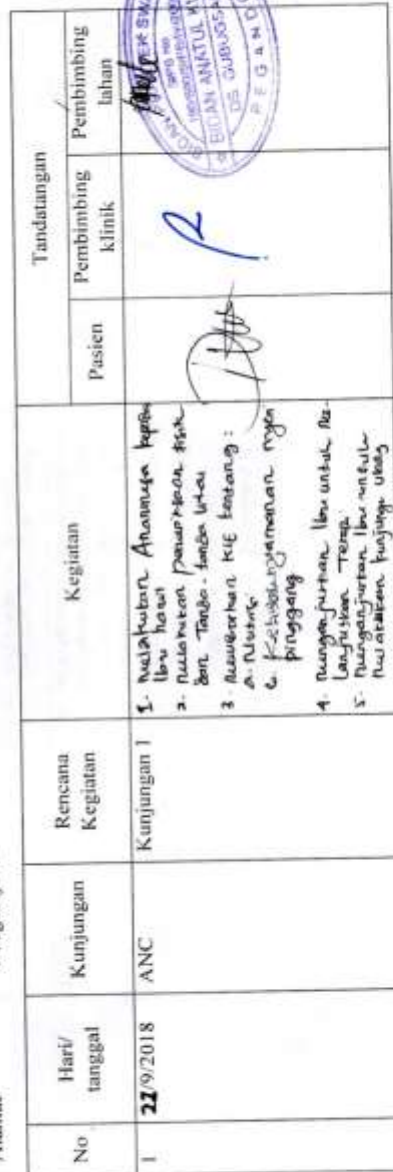 No
Hari/
tanggal
Kunjungan
Rencana
Kegiatan
Kegiatan
Tandatangan
Pasien
Pembimbing
klinik
Pembimbing
lahan
1
22/9/2018
ANC
Kunjungan 1
1. melakukan Anamnesa kepada
Ibu hamil
2. melakukan pemeriksaan fisik
dan Tanda-tanda vital
3. memberikan KIE tentang :
a. Nutrisi
Ketidaknyamanan nyeri
pinggang
4. menganjurkan Ibu untuk me-
lanjutkan Terapi
5. menganjurkan Ibu untuk
melakukan kunjungan ulang
BIDAN
BIDAN ANATUL
DS GUBUGSA
PEGAND